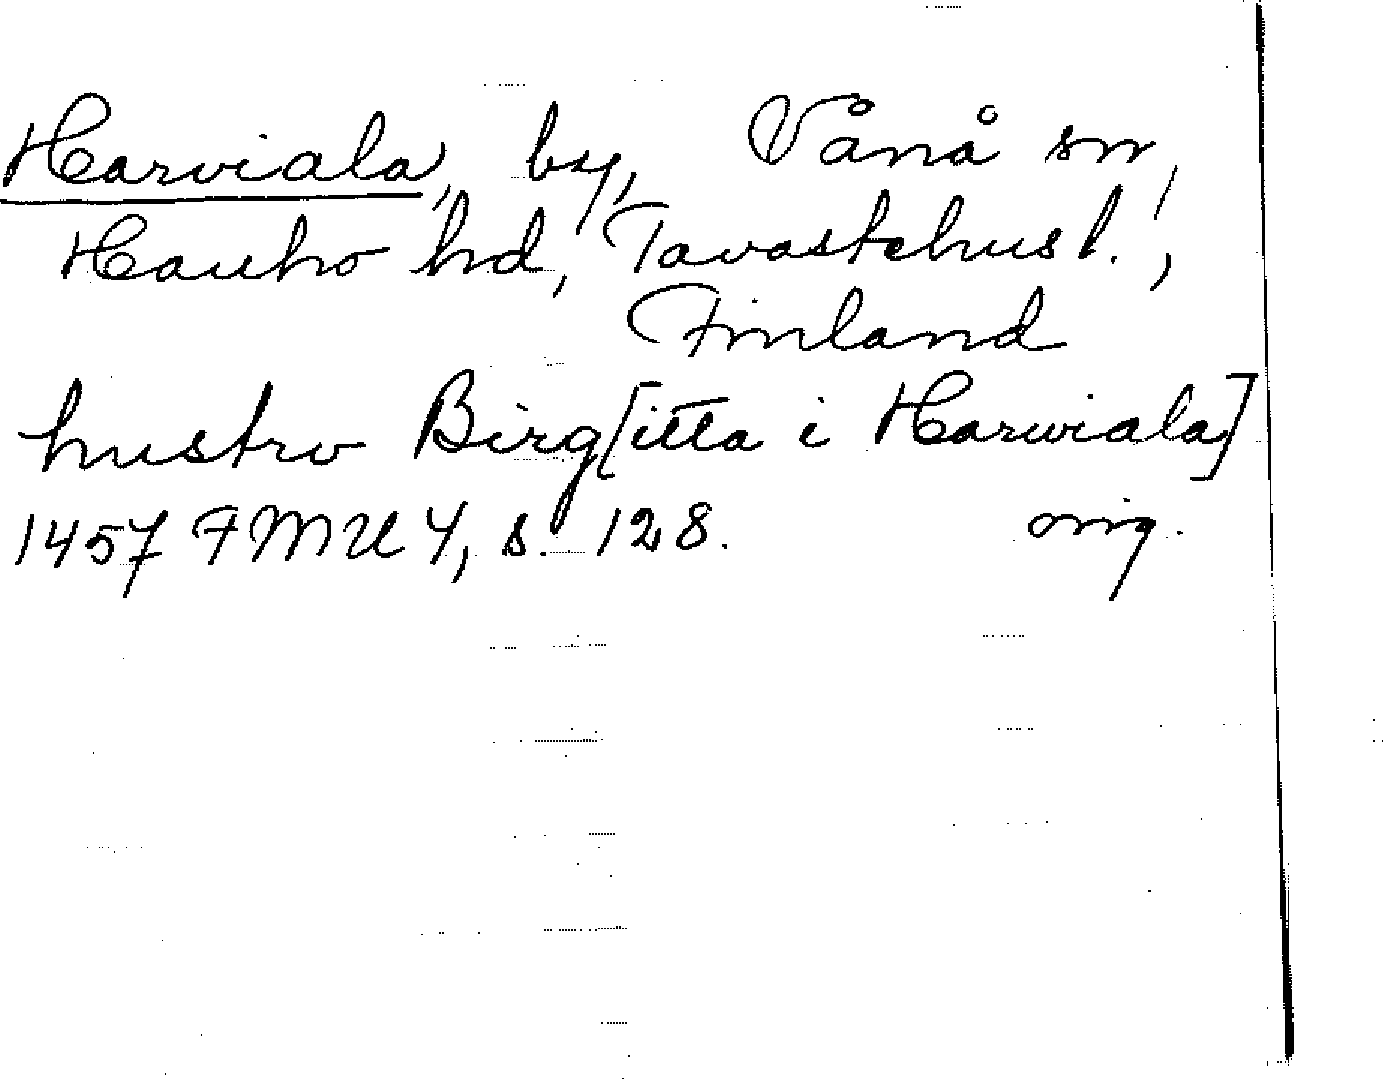 Harviala, by, Vånå sn,
Hauho hd, Tavastehus l.,
Finland
hustro Birg[itta i Harwiala]
1457 FMU 4, s. 128. orig.